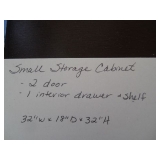 Small Storage Cabinet
- 2 door
- 1 interior drawer + shelf
32"W x 18"D x 32"H